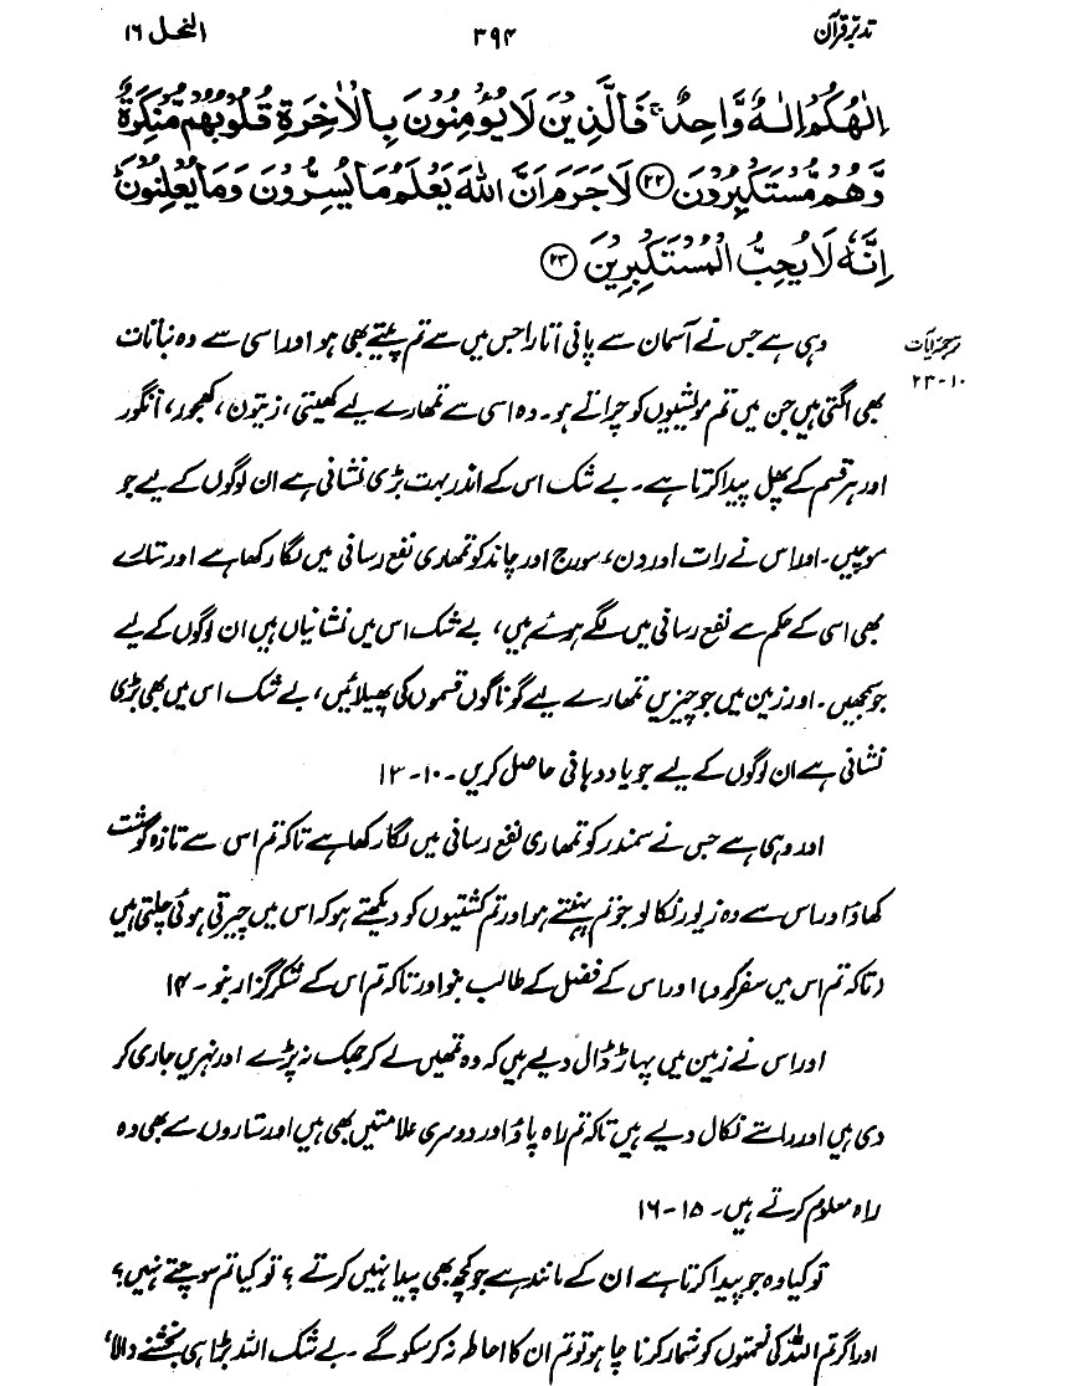 تدبر قرآن ۳۹۴ النحل ۱۶
اِلٰهُكُمْ اِلٰهٌ وَّاحِدٌ ۚ فَالَّذِيْنَ لَا يُؤْمِنُوْنَ بِالْاٰخِرَةِ قُلُوْبُهُمْ مُّنْكِرَةٌ
وَّهُمْ مُّسْتَكْبِرُوْنَ ۲۲ لَا جَرَمَ اَنَّ اللّٰهَ يَعْلَمُ مَا يُسِرُّوْنَ وَمَا يُعْلِنُوْنَ ؕ
اِنَّهٗ لَا يُحِبُّ الْمُسْتَكْبِرِيْنَ ۲۳
ترجمۂ آیات
۱۰-۲۳
وہی ہے جس نے آسمان سے پانی اتارا جس میں سے تم پیتے بھی ہو اور اسی سے وہ نباتات
بھی اگتی ہیں جن میں تم مویشیوں کو چراتے ہو۔ وہ اسی سے تمھارے لیے کھیتی، زیتون، کھجور، انگور
اور ہر قسم کے پھل پیدا کرتا ہے۔ بے شک اس کے اندر بہت بڑی نشانی ہے ان لوگوں کے لیے جو
سوچیں۔ اور اس نے رات اور دن، سورج اور چاند کو تمھاری نفع رسانی میں لگا رکھا ہے اور ستارے
بھی اسی کے حکم سے نفع رسانی میں لگے ہوئے ہیں، بے شک اس میں نشانیاں ہیں ان لوگوں کے لیے
جو سمجھیں۔ اور زمین میں جو چیزیں تمھارے لیے گوناگوں قسموں کی پھیلائیں، بے شک اس میں بھی بڑی
نشانی ہے ان لوگوں کے لیے جو یاد دہانی حاصل کریں۔ ۱۰-۱۳
اور وہی ہے جس نے سمندر کو تمھاری نفع رسانی میں لگا رکھا ہے تاکہ تم اس سے تازہ گوشت
کھاؤ اور اس سے وہ زیور نکالو جو تم پہنتے ہو اور تم کشتیوں کو دیکھتے ہو کہ اس میں چیرتی ہوئی چلتی ہیں
(تاکہ تم اس میں سفر کرو) اور اس کے فضل کے طالب بنو اور تاکہ تم اس کے شکر گزار بنو۔ ۱۴
اور اس نے زمین میں پہاڑ ڈال دیے ہیں کہ وہ تمھیں لے کر جھک نہ پڑے اور نہریں جاری کر
دی ہیں اور راستے نکال دیے ہیں تاکہ تم راہ پاؤ اور دوسری علامتیں بھی ہیں اور ستاروں سے بھی وہ
راہ معلوم کرتے ہیں۔ ۱۵-۱۶
تو کیا وہ جو پیدا کرتا ہے ان کے مانند ہے جو کچھ بھی پیدا نہیں کرتے؟ تو کیا تم سوچتے نہیں؟
اور اگر تم اللہ کی نعمتوں کو شمار کرنا چاہو تو تم ان کا احاطہ نہ کر سکو گے۔ بے شک اللہ بڑا ہی بخشنے والا،